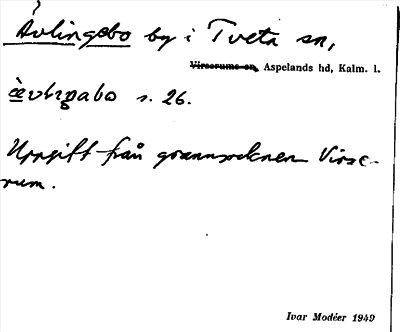 Ävlingebo by i Tveta sn,
Virserums sn, Aspelands hd, Kalm. l.
s. 26.
Uppgift från grannsocknen Virse-
rum.
Ivar Modéer 1949